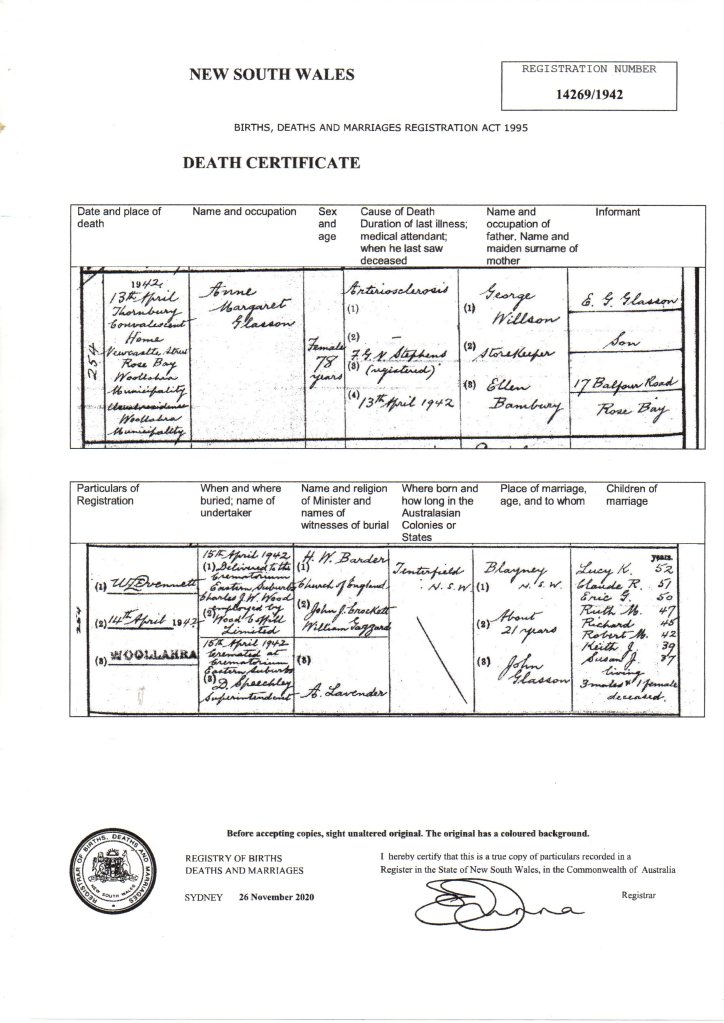 NEW SOUTH WALES
REGISTRATION NUMBER
14269/1942
BIRTHS, DEATHS AND MARRIAGES REGISTRATION ACT 1995
DEATH CERTIFICATE
Date and place of
death
Name and occupation
Sex
and
age
Cause of Death
Duration of last illness;
medical attendant;
when he last saw
deceased
Name and
occupation of
father. Name and
maiden surname of
mother
Informant
254
1942
13th April
Thornbury
Convalescent
Home
Newcastle Street
Rose Bay
Woollahra
Municipality
Usual residence
Woollahra
Municipality
Anne
Margaret
Glasson
Female
78
years
Arteriosclerosis
(1)
(2) –
F. G. N. Stephens
(3) (registered)
(4) 13th April 1942
George
(1) Willson
(2) Storekeeper
(3) Ellen
Bambury
E. G. Glasson
Son
17 Balfour Road
Rose Bay
Particulars of
Registration
When and where
buried; name of
undertaker
Name and religion
of Minister and
names of
witnesses of burial
Where born and
how long in the
Australasian
Colonies or
States
Place of marriage,
age, and to whom
Children of
marriage
254
(1)
(2) 14th April 1942
(3) WOOLLAHRA
15th April 1942
(1) Delivered to the
Crematorium
Eastern Suburbs
Charles J. W. Wood
(2) employed by
Wood Coffill
Limited
15th April 1942
Cremated at
Crematorium
Eastern Suburbs
(3) D. Speechley
Superintendent
H. W. Barder
(1)
Church of England
(2) John J. Crockett
William Gazzard
(3)
A. Lavender
Tenterfield
N. S. W.
Blayney
(1) N. S. W.
(2) About
21 years
(3) John
Glasson
years.
Lucy K. 52
Claude R. 51
Eric G. 50
Ruth M. 47
Richard 45
Robert M. 42
Keith J. 39
Susan J. 37
living
3 males & 1 female
deceased.
Before accepting copies, sight unaltered original. The original has a coloured background.
REGISTRAR OF BIRTHS, DEATHS AND MARRIAGES
NEW SOUTH WALES
REGISTRY OF BIRTHS
DEATHS AND MARRIAGES
SYDNEY 26 November 2020
I hereby certify that this is a true copy of particulars recorded in a
Register in the State of New South Wales, in the Commonwealth of Australia
Registrar